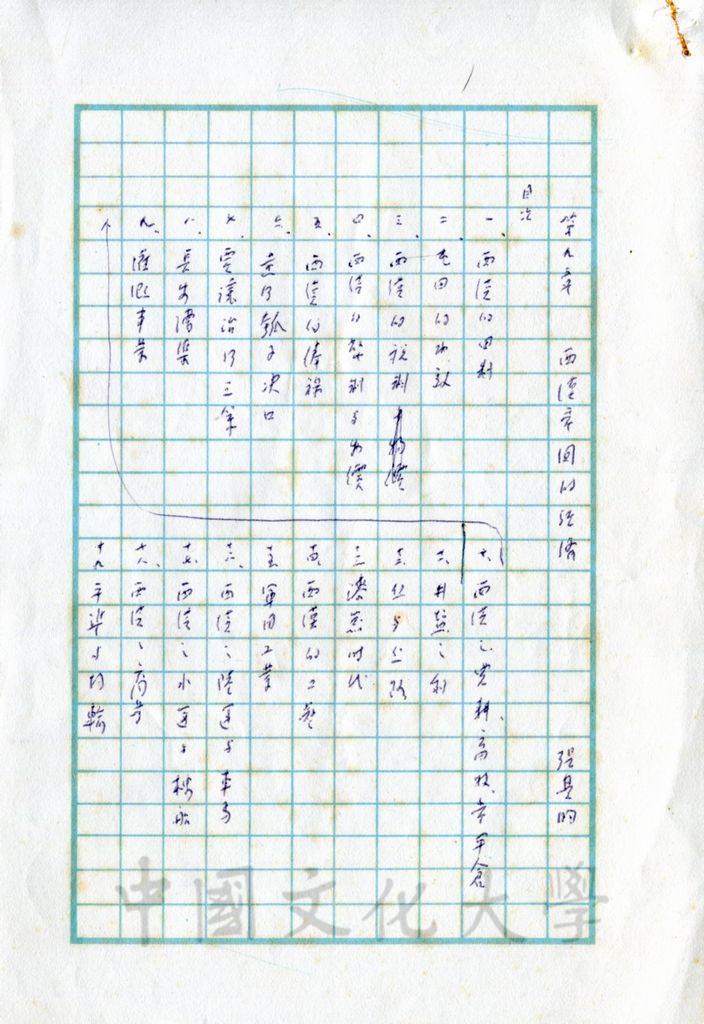 第九章 西漢帝國的經濟 張其昀
目次
一、西漢的田制
二、屯田的功效
三、西漢的稅制
四、西漢的幣制與物價
五、西漢的俸祿
六、黃河瓠子決口
七、賈讓治河三策
八、長安漕渠
九、灌溉事業
十、西漢之農耕、畜牧、常平倉
十一、井鹽之利
十二、絲與絲路
十三、漆器時代
十四、西漢的工藝
十五、軍用工業
十六、西漢之陸運與車馬
十七、西漢之水運與樓船
十八、西漢之商業
十九、平準與均輸
中國文化大學